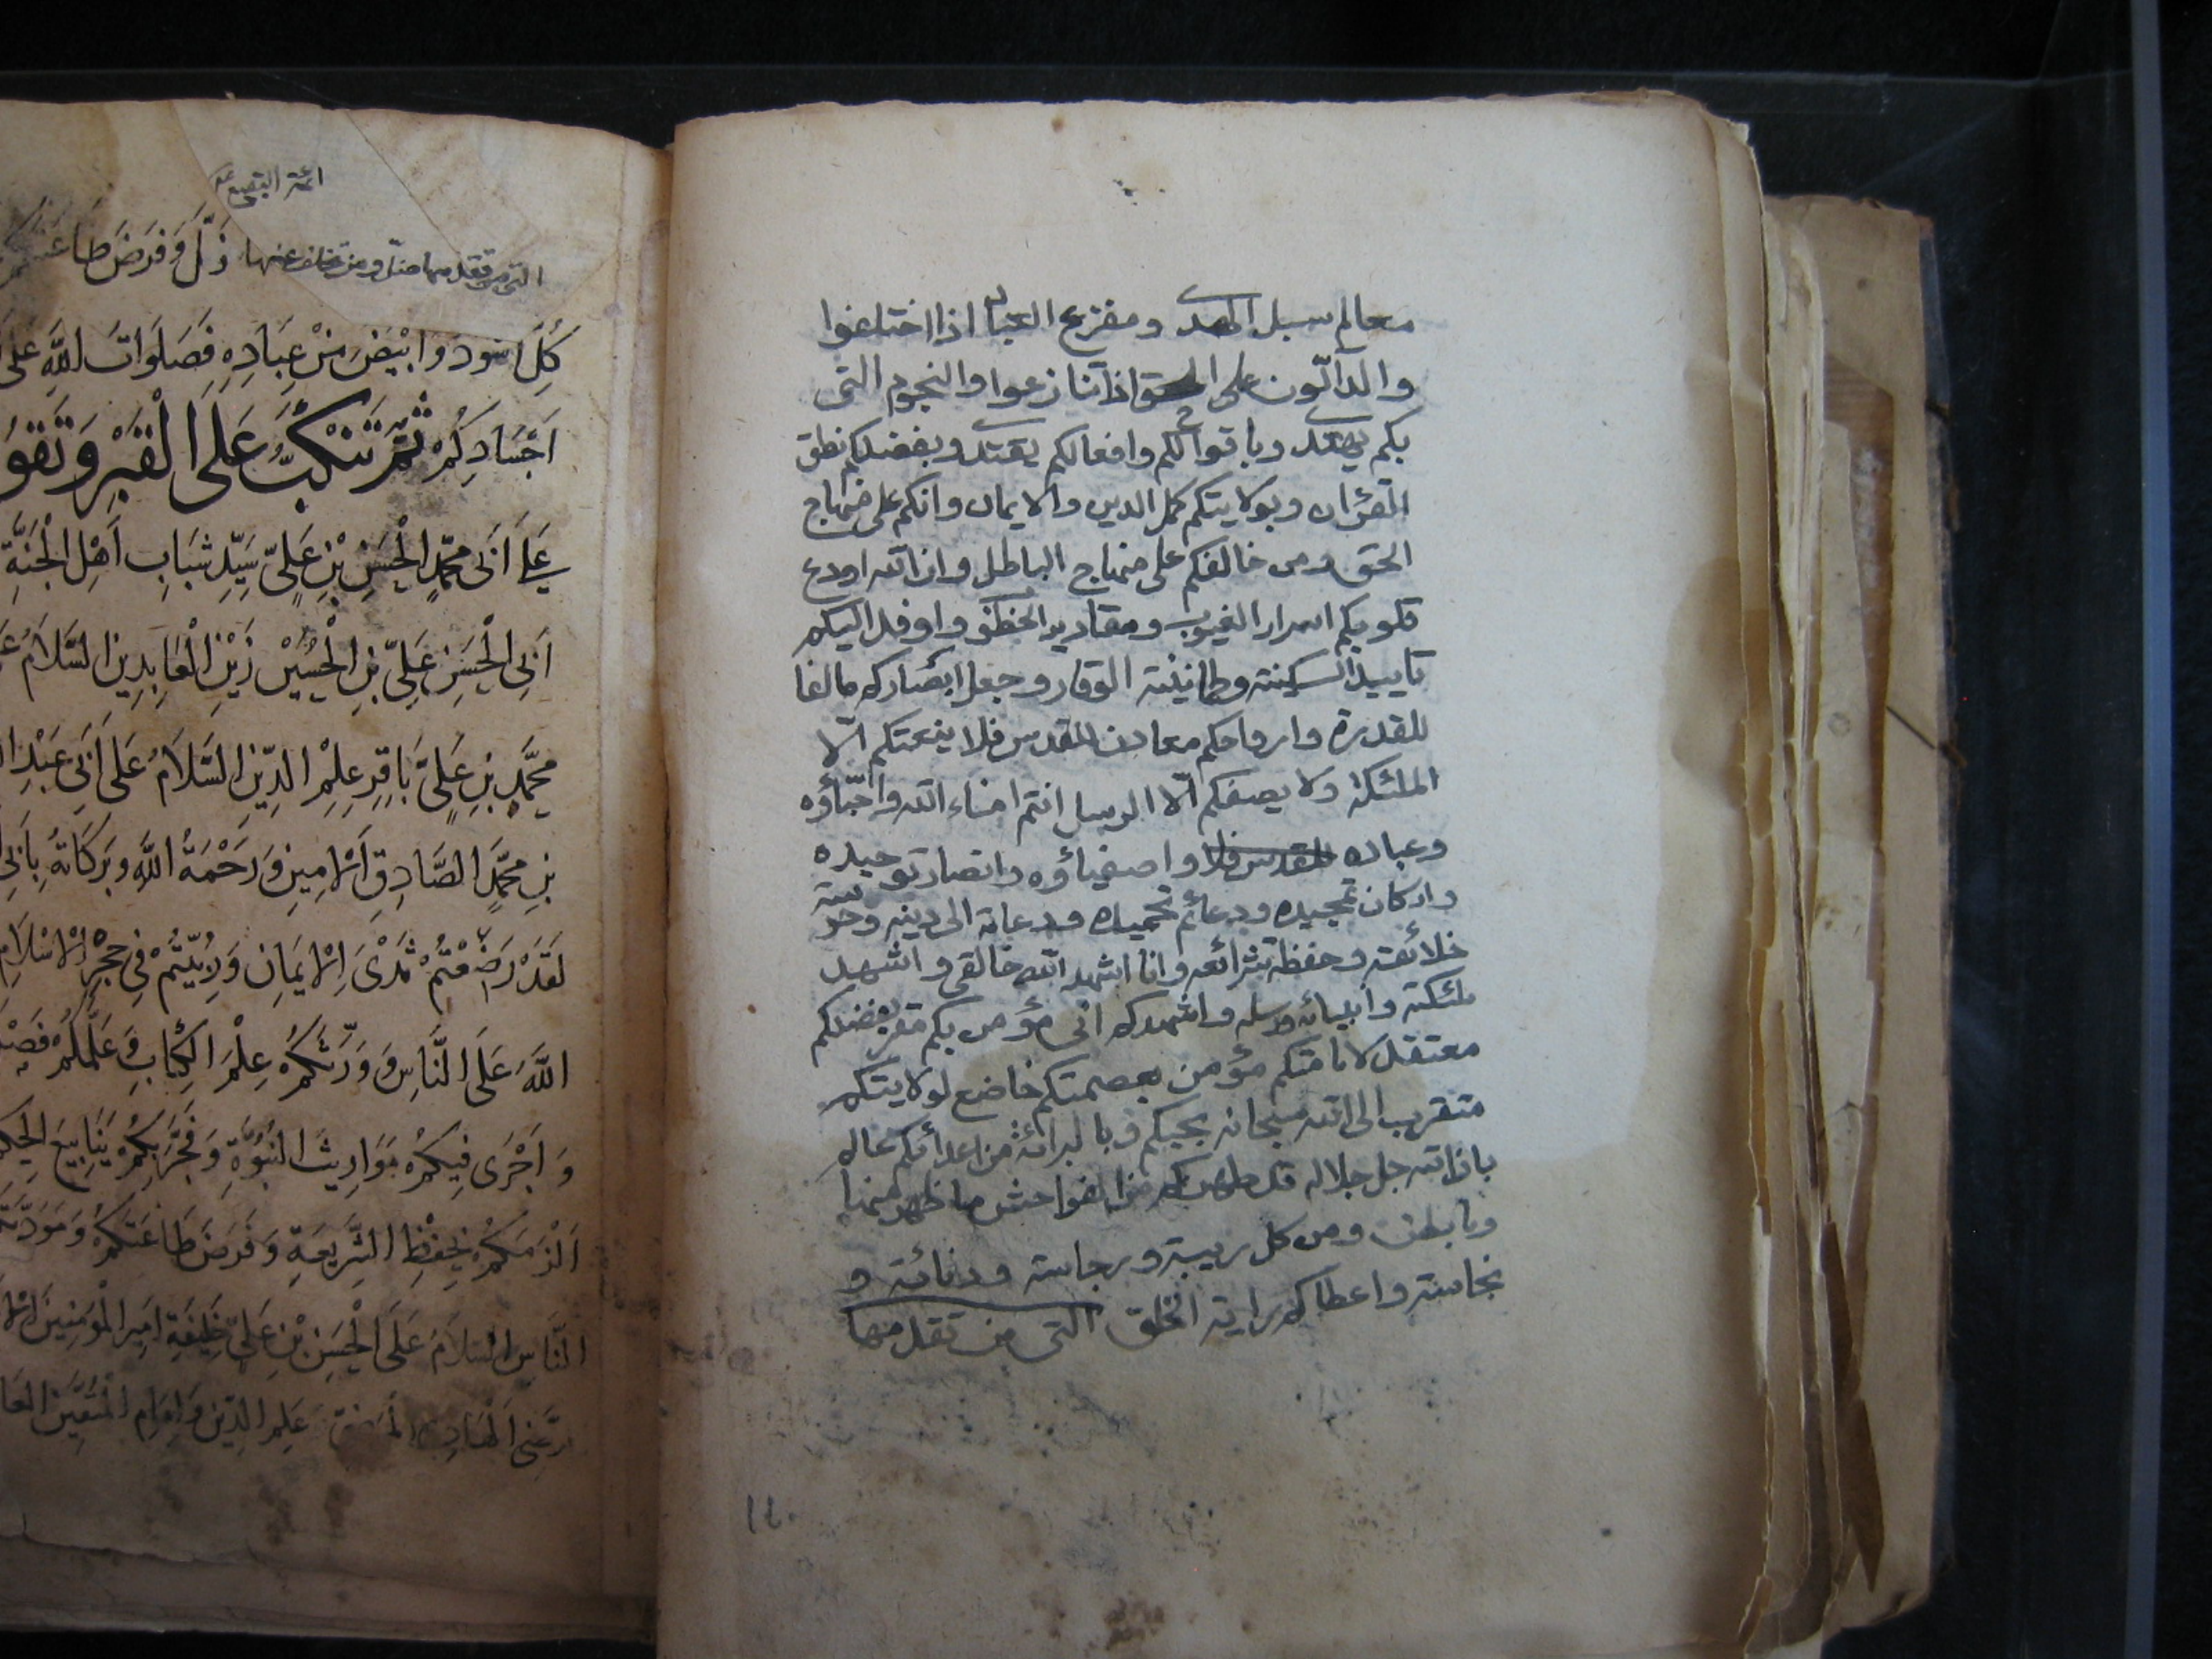 معالم سبل الهدى ومفزع العباد اذا اختلفوا
والدآلّون على الحق اذا تنازعوا والنجوم التى
بكم يهتدى وباقوالكم وافعالكم يقتدى وبفضلكم نطق
القرءان وبولايتكم كمل الدين والايمان وانكم على منهاج
الحق ومن خالفكم على منهاج الباطل وان الله اودع
قلوبكم اسرار الغيوب ومقادير الخطوب واوفد اليكم
تاييد السكينة وطمانينة الوقار وجعل ابصاركم مالفا
للقدرة وارواحكم معادن القدس فلا ينعتكم الّا
الملئكة ولا يصفكم الّا الرسل انتم امناء الله واحبّاؤه
وعباده للقدس فلا واصفياؤه وانصار توحيده
واركان تمجيده ودعائم تحميده ودعاة الى دينه وحرسة
خلائقه وحفظة شرائعه وانا اشهد الله خالقى واشهد
ملئكته وانبيائه ورسله واشهدكم انى مؤمن بكم مقر بفضلكم
معتقد لامامتكم مؤمن بعصمتكم خاضع لولايتكم
متقرب الى الله سبحانه بحبكم وبالبرائة من اعدائكم عالم
بان الله جل جلاله قد طهركم من الفواحش ما ظهر منها
وما بطن ومن كل ريبة ورجاسة ودنائة و
نجاسة واعطاكم راية الحق التى من تقدمها
١٤٠
ائمة البقيع
التى من تقدمها ضلّ ومن تخلف عنها ذَلَّ وَفَرَضَ طاعتكم
كُلّ اسود وابْيَضَ مِنْ عِبَادِهِ فَصَلَوَاتُ اللَّهِ عَلَى
اَجْسَادِكُمْ ثُمَّ تَنْكَبُّ عَلَى الْقَبْرِ وَتَقُو
عَلَى اَبى مُحَمَّدٍ الْحَسَنِ بْنِ عَلِىّ سَيِّدِ شَبَابِ اَهْلِ الْجَنَّةِ
اَبِى الْحَسَنِ عَلِىّ بْنِ الْحُسَيْنِ زَيْنِ الْعَابِدِينَ السَّلَامُ
مُحَمَّدِ بْنِ عَلِىٍّ بَاقِرِ عِلْمِ الدِّينِ السَّلَامُ عَلَى اَبِى عَبْدِ
بْنِ مُحَمَّدٍ الصَّادِقِ الْاَمِينِ وَرَحْمَةُ اللَّهِ وَبَرَكَاتُهُ بِاَبِى
لَقَدْ رَضَعْتُمْ ثَدْىَ الْاِيمَانِ وَرُبِّيتُمْ فِى حِجْرِ الْاِسْلَامِ
اللَّهُ عَلَى النَّاسِ وَوَرَّثَكُمْ عِلْمَ الْكِتَابِ وَعَلَّمَكُمْ فَصْلَ
وَاَجْرَى فِيكُمْ مَوَارِيثَ النُّبُوَّةِ وَفَجَّرَ بِكُمْ يَنَابِيعَ الْحِكْمَ
اَلْزَمَكُمْ بِحِفْظِ الشَّرِيعَةِ وَفَرَضَ طَاعَتَكُمْ وَمَوَدَّتَكُمْ
النَّاسِ السَّلَامُ عَلَى الْحَسَنِ بْنِ عَلِىّ خَلِيفَةِ اَمِيرِ الْمُؤْمِنِينَ الْاِ
عَلَمِ الدِّينِ وَاِمَامِ الْمُتَّقِينَ